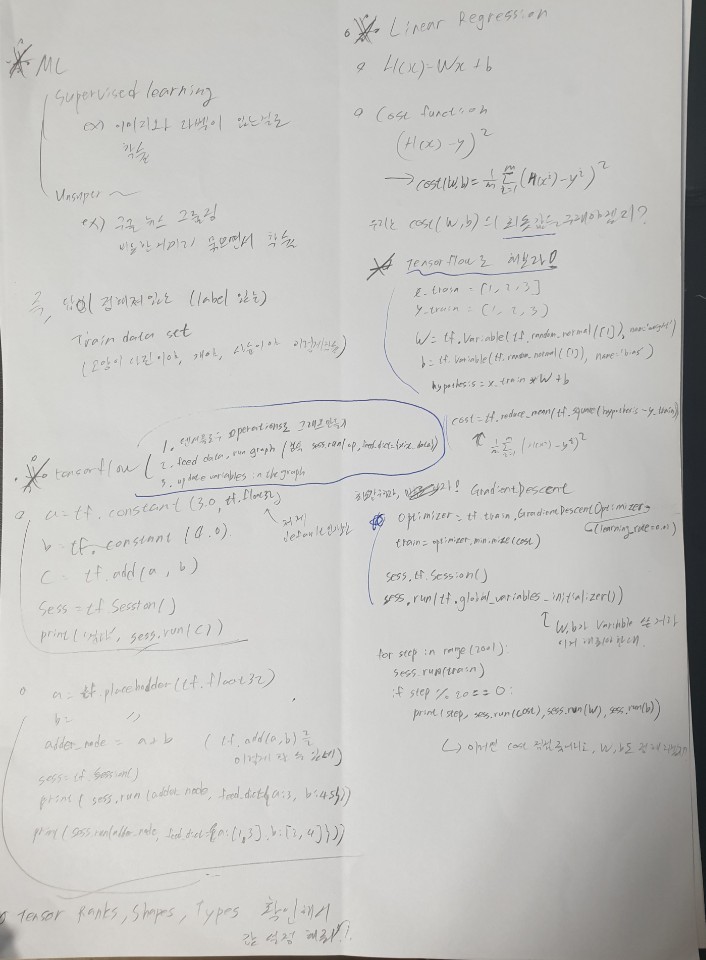 ML
Supervised learning
ex) 이미지와 라벨이 있는걸로
학습
Unsuper ~
ex) 구글 뉴스 그룹핑
비슷한 이미지 모으면서 학습
즉, 답이 정해져있는 (label 있는)
Train data set
tensorflow
1. 텐서플로우 operations로 그래프만들기
2. feed data, run graph ( sess.run(op, feed_dict={x:x_data})
3. update variables in the graph
a = tf.constant (3.0, tf.float32)
b = tf.constant (4.0)
c = tf.add(a, b)
Sess = tf.Session()
print( sess.run(c))
a = tf.placeholder(tf.float32)
b = 〃
adder_node = a + b ( tf.add(a,b) 를
sess = tf.Session()
print ( sess.run (adder_node, feed_dict={a:3, b:4.5}))
print ( sess.run(adder_node, feed_dict={a:[1,3], b:[2,4]}))
Tensor Ranks, Shapes, Types 확인해서
값 설정 해줘!
Linear Regression
H(x) = Wx + b
Cost function
(H(x) - y)²
→ cost(W,b) = 1/m m∑i=1 (H(xⁱ) - yⁱ)²
우리는 cost(W,b)의 최솟값을 구해야겠지?
Tensorflow로 해보자!
x_train = [1, 2, 3]
y_train = [1, 2, 3]
W = tf.Variable(tf.random_normal([1]), name='weight')
b = tf.Variable(tf.random_normal([1]), name='bias')
hypothesis = x_train * W + b
cost = tf.reduce_mean(tf.square(hypothesis - y_train))
↑ 1/m ∑ (H(xⁱ) - yⁱ)²
GradientDescent
Optimizer = tf.train.GradientDescentOptimizer
(learning_rate=0.01)
train = optimizer.minimize(cost)
sess = tf.Session()
sess.run(tf.global_variables_initializer())
W, b가 Variable 쓸거라
이거 해줘야한대.
for step in range(2001):
sess.run(train)
if step % 20 == 0:
print(step, sess.run(cost), sess.run(W), sess.run(b))